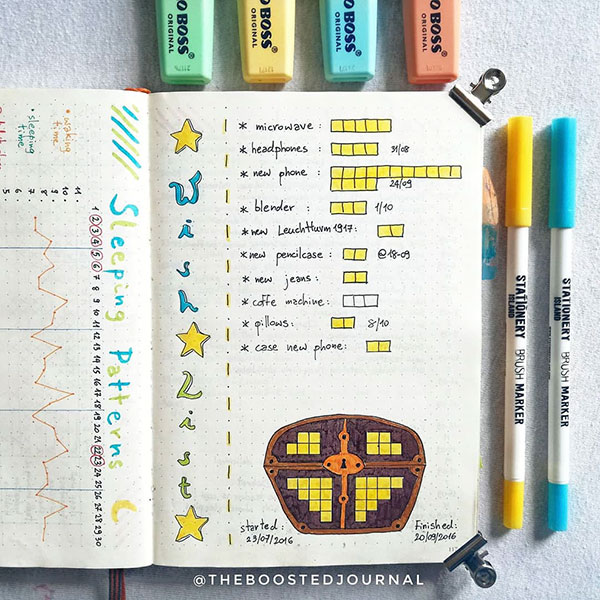 BOSS
ORIGINAL
O BOSS
ORIGINAL
O BOSS
ORIGINAL
BOSS
ORIGINAL
waking time
sleeping time
11
10
9
8
7
6
5
Sleeping Patterns
1 2 3 4 5 6 7 8 9 10 11 12 13 14 15 16 17 18 19 20 21 22 23 24 25 26 27 28 29 30
Wish List
* microwave :
* headphones : 31/08
* new phone :
24/09
* blender : 1/10
* new Leuchtturm 1917:
* new pencilcase: @18-09
* new jeans:
* coffe machine:
* pillows: 8/10
* case new phone:
started:
23/07/2016
Finished:
20/09/2016
STATIONERY ISLAND BRUSH MARKER
STATIONERY ISLAND BRUSH MARKER
@THEBOOSTEDJOURNAL